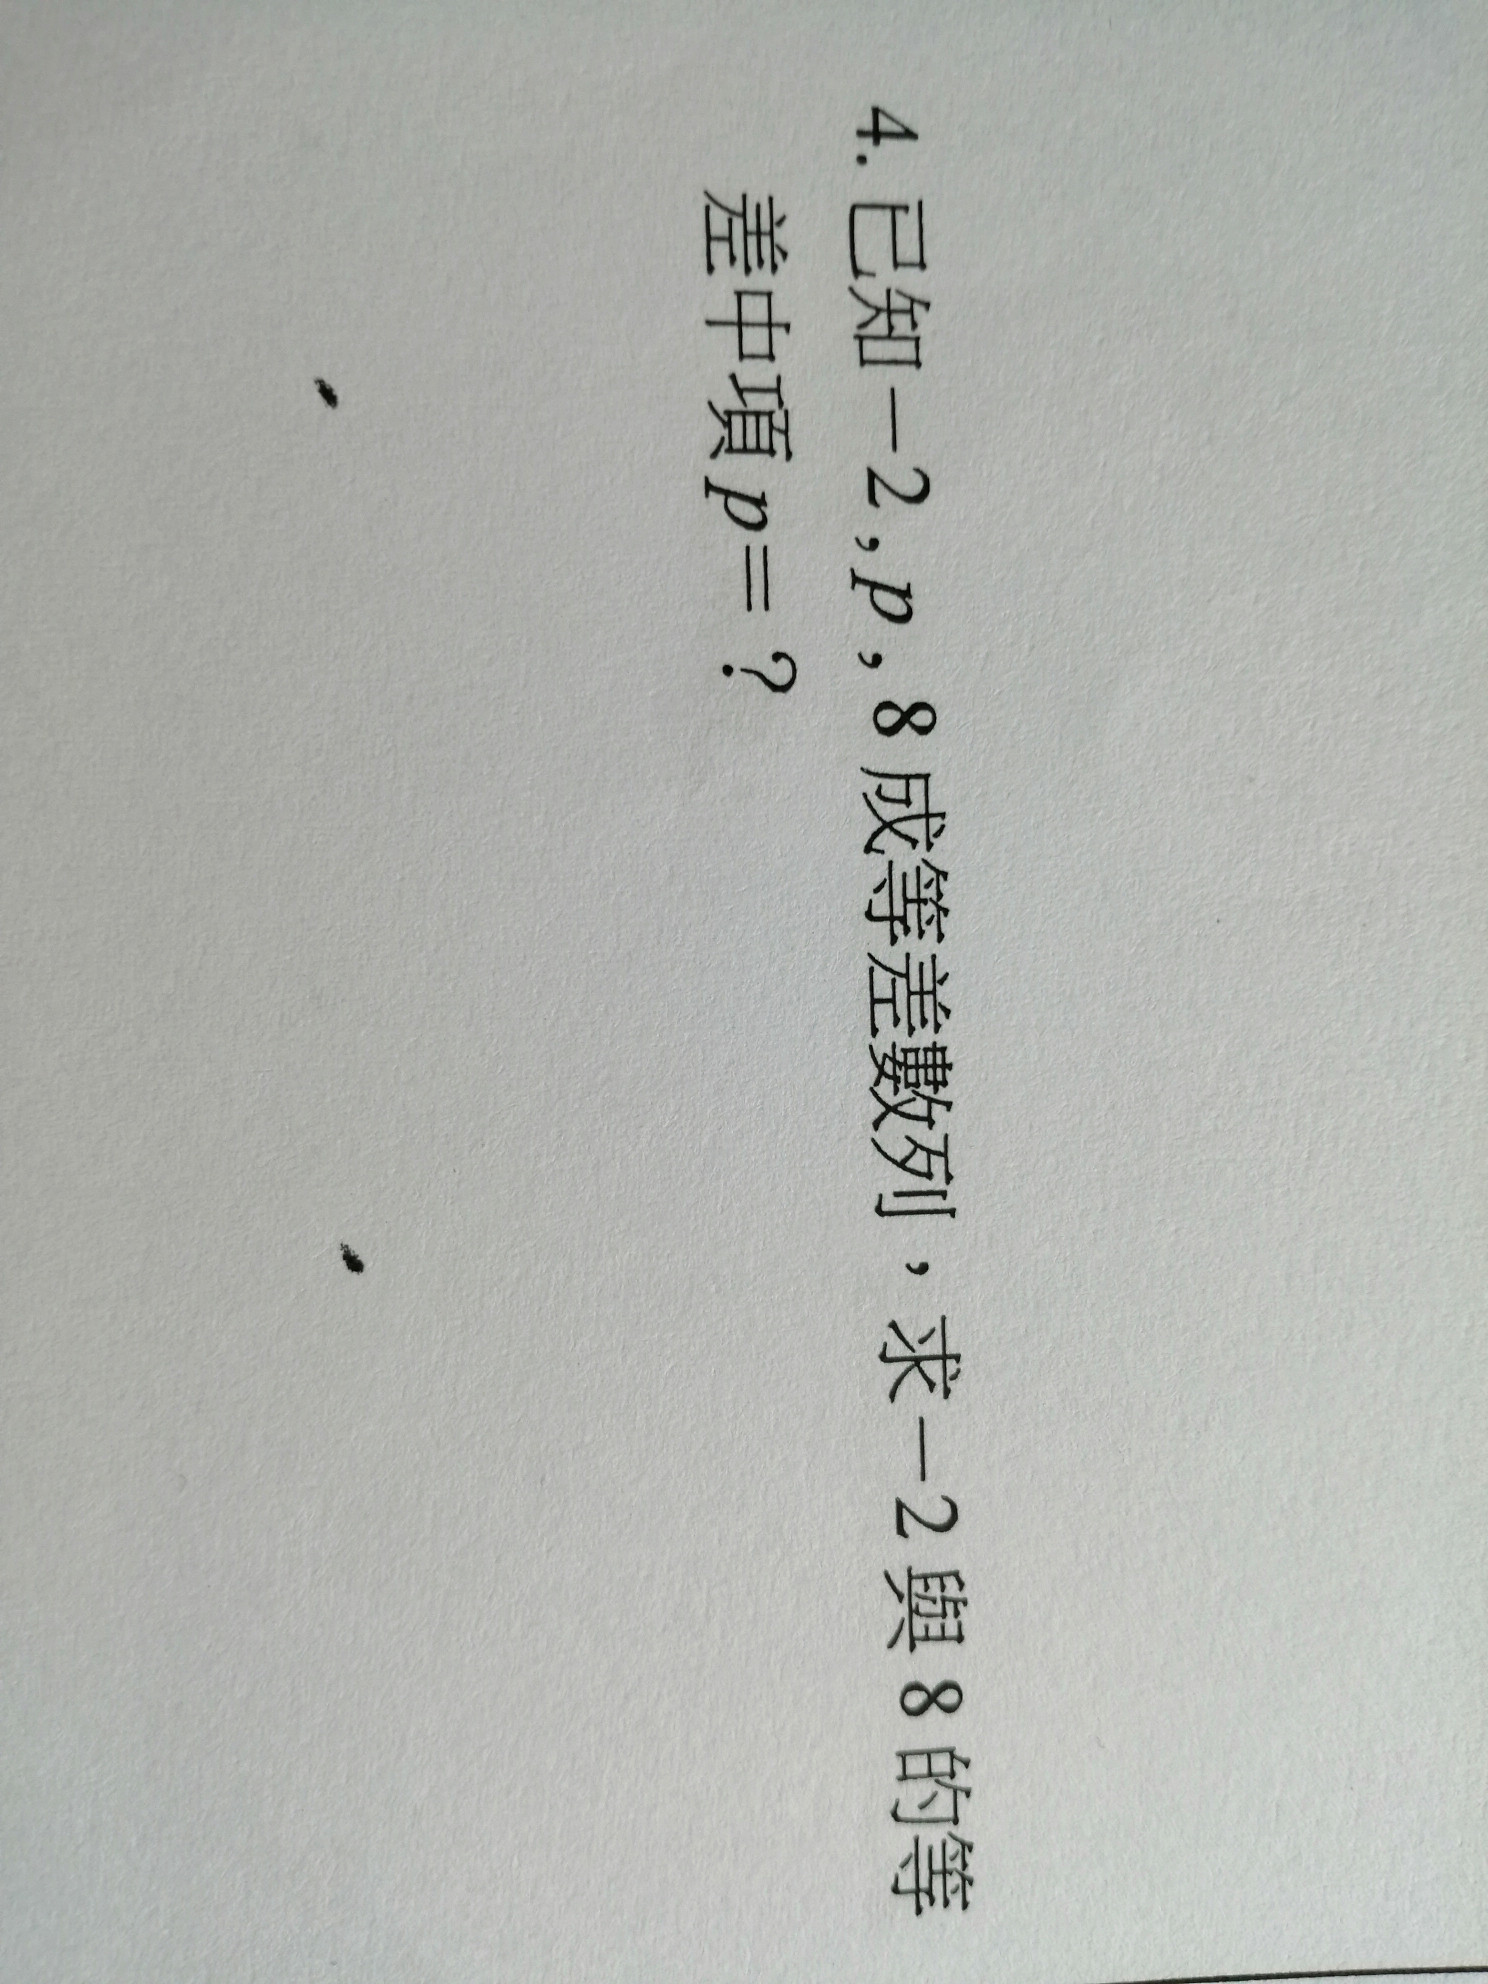 4. 已知－2,p,8成等差數列，求－2與8的等
差中項p=？